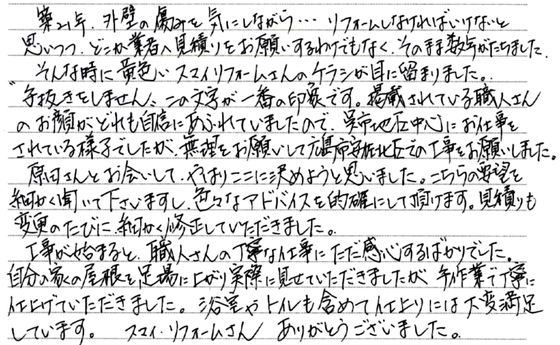 築21年、外壁の傷みを気にしながら… リフォームしなければいけないと
思いつつ、どこか業者へ見積りをお願いするわけでもなく、そのまま数年がたちました。
そんな時に黄色いスマイリフォームさんのチラシが目に留まりました。
"手抜きをしません、この文字が一番の印象です。掲載されている職人さん
のお顔がどれも自信にあふれていましたので、呉市地区中心にお仕事を
されている様子でしたが、無理をお願いして広島市安佐北区での工事をお願いしました。
原田さんとお会いして、やはりここに決めようと思いました。こちらの要望を
細かく聞いて下さいますし、色々なアドバイスを的確にして頂けます。見積りも
変更のたびに、細かく修正していただきました。
工事が始まると、職人さんの丁寧な仕事にただ感心するばかりでした。
自分の家の屋根を足場に上がり実際に見せていただきましたが、手作業で丁寧に
仕上げていただきました。浴室やトイレも含めて仕上りには大変満足
しています。 スマイ・リフォームさん ありがとうございました。